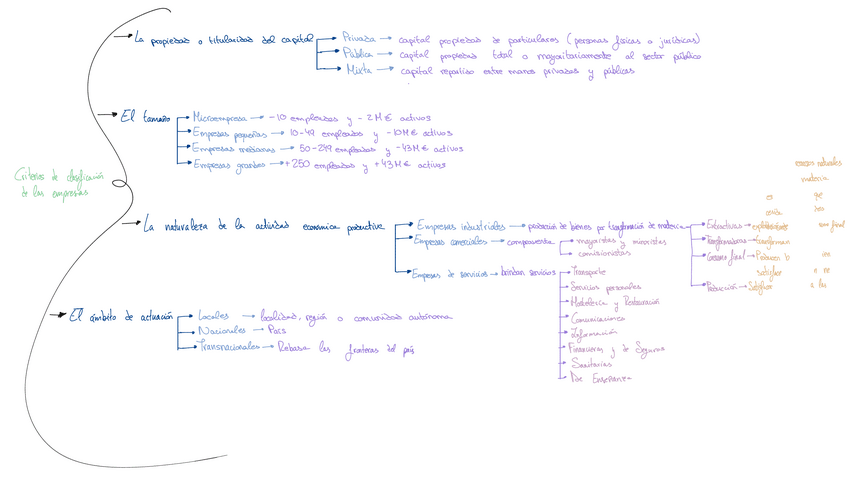 La propiedad o titularidad del capital
Privada → capital propiedad de particulares (personas físicas o jurídicas)
Pública → capital propiedad total o mayoritariamente al sector público
Mixta → capital repartido entre manos privadas y públicas
El tamaño
Microempresa → -10 empleados y -2M€ activos
Empresas pequeñas → 10-49 empleados y -10M€ activos
Empresas medianas → 50-249 empleados y -43M€ activos
Empresas grandes → +250 empleados y +43M€ activos
Criterios de clasificación
de las empresas
recursos naturales
materia
que
La naturaleza de la actividad económica productiva
Empresas industriales → producción de bienes por transformación de materia
Extractivas →
Empresas comerciales → compraventa
mayoristas y minoristas
comisionistas
Transformadoras → transforman
Consumo final → Producen
satisfac
Producción → Satisfac
Empresas de servicios → brindan servicios
Transporte
Servicios personales
Hostelería y Restauración
Comunicaciones
Información
Financieras y de Seguros
Sanitarias
De Enseñanza
El ámbito de actuación
Locales → localidad, región o comunidad autónoma
Nacionales → País
Transnacionales → Rebasa las fronteras del país